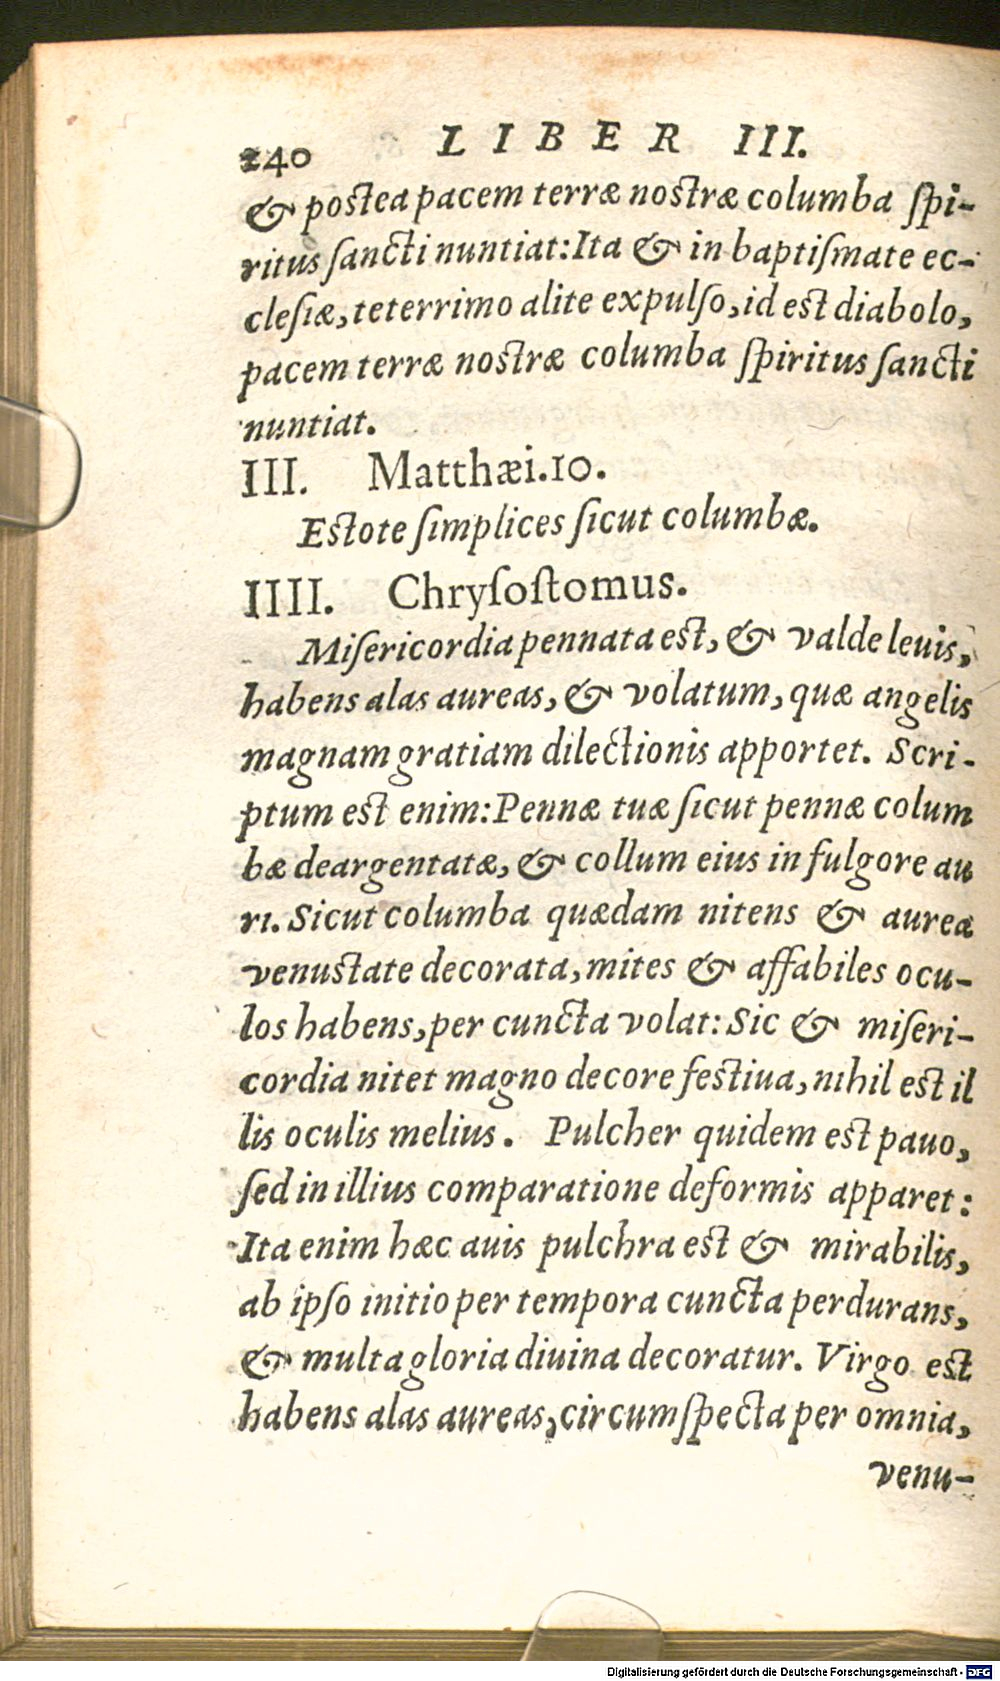 240 LIBER III.
& postea pacem terræ nostræ columba ſpi-
ritus ſancti nuntiat: Ita & in baptiſmate ec-
cleſiæ, teterrimo alite expulſo, id est diabolo,
pacem terræ nostræ columba ſpiritus ſancti
nuntiat.
III. Matthæi. 10.
Estote ſimplices ſicut columbæ.
IIII. Chryſoſtomus.
Miſericordia pennata est, & valde leuis,
habens alas aureas, & volatum, quæ angelis
magnam gratiam dilectionis apportet. Scri-
ptum est enim: Pennæ tuæ ſicut pennæ colum
bæ deargentatæ, & collum eius in fulgore au
ri. Sicut columba quædam nitens & aurea
venustate decorata, mites & affabiles ocu-
los habens, per cuncta volat: Sic & miſeri-
cordia nitet magno decore festiua, nihil est il
lis oculis melius. Pulcher quidem est pauo,
ſed in illius comparatione deformis apparet:
Ita enim hæc auis pulchra est & mirabilis,
ab ipſo initio per tempora cuncta perdurans,
& multa gloria diuina decoratur. Virgo est
habens alas aureas, circumſpecta per omnia,
venu-
Digitalisierung gefördert durch die Deutsche Forschungsgemeinschaft - DFG